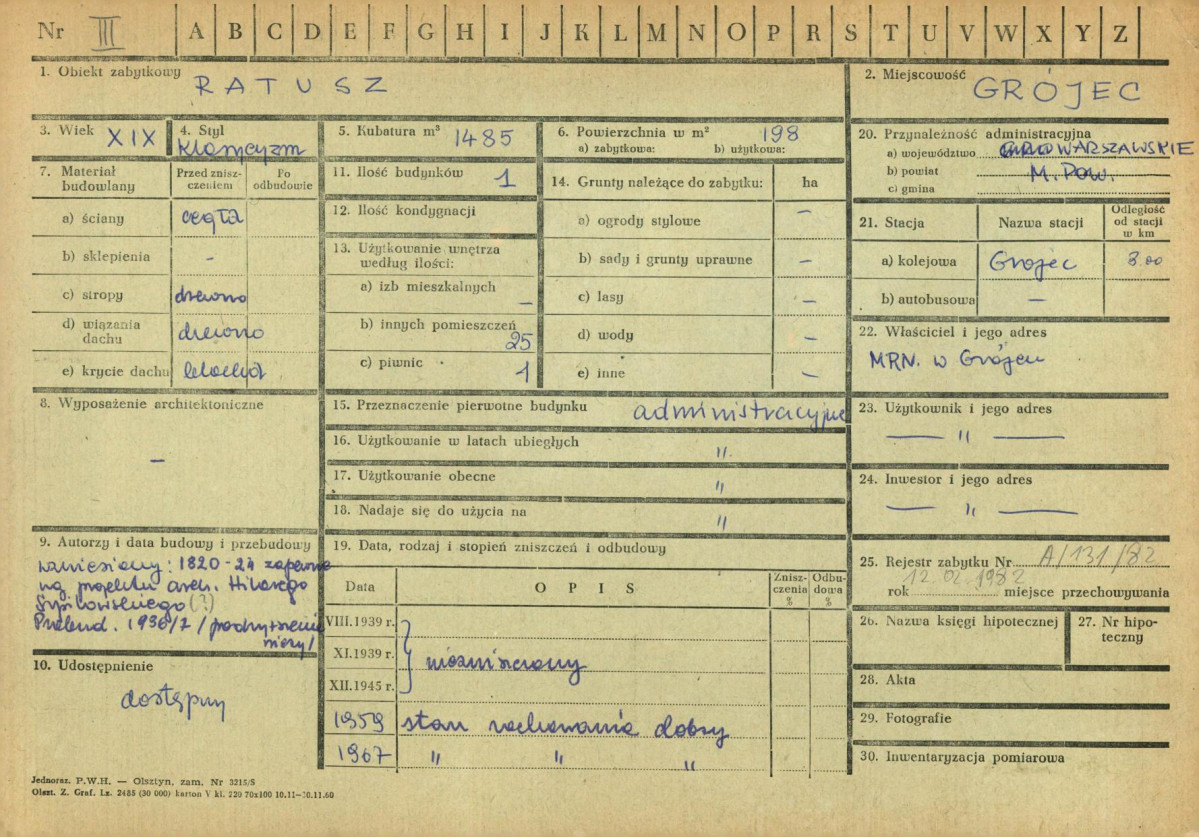 Nr III A B C D E F G H I J K L M N O P R S T U V W X Y Z
1. Obiekt zabytkowy RATUSZ
2. Miejscowość GRÓJEC
3. Wiek XIX
4. Styl Klasycyzm
5. Kubatura m³ 1485
6. Powierzchnia w m² 198
a) zabytkowa: b) użytkowa:
7. Materiał budowlany
Przed zniszczeniem
Po odbudowie
a) ściany cegła
b) sklepienia -
c) stropy drewno
d) wiązania dachu drewno
e) krycie dachu blacha
8. Wyposażenie architektoniczne
–
9. Autorzy i data budowy i przebudowy
wzniesiony: 1820-24 zapewne
wg. projektu arch. Hilarego
Szpilowskiego (?)
Przebud. 1936/7 /podwyższenie
10. Udostępnienie
dostępny
11. Ilość budynków 1
12. Ilość kondygnacji
13. Użytkowanie wnętrza
według ilości:
a) izb mieszkalnych –
b) innych pomieszczeń 25
c) piwnic 1
14. Grunty należące do zabytku: ha
a) ogrody stylowe –
b) sady i grunty uprawne –
c) lasy –
d) wody –
e) inne –
15. Przeznaczenie pierwotne budynku administracyjne
16. Użytkowanie w latach ubiegłych "
17. Użytkowanie obecne "
18. Nadaje się do użycia na "
19. Data, rodzaj i stopień zniszczeń i odbudowy
Data OPIS Zniszczenia % Odbudowa %
VIII.1939 r.
XI.1939 r. niezniszczony
XII.1945 r.
1959 stan zachowania dobry
1967 " " "
20. Przynależność administracyjna
a) województwo WARSZAWSKIE
b) powiat M. Pow.
c) gmina
21. Stacja Nazwa stacji Odległość od stacji w km
a) kolejowa Grójec 3.00
b) autobusowa –
22. Właściciel i jego adres
MRN. w Grójcu
23. Użytkownik i jego adres
— " —
24. Inwestor i jego adres
— " —
25. Rejestr zabytku Nr A/131/82
rok 12.02.1982 miejsce przechowywania
26. Nazwa księgi hipotecznej
27. Nr hipoteczny
28. Akta
29. Fotografie
30. Inwentaryzacja pomiarowa
Jednoraz. P.W.H. — Olsztyn, zam. Nr 3215/S
Olszt. Z. Graf. Lz. 2485 (30 000) karton V kl. 220 70x100 10.11–30.11.60